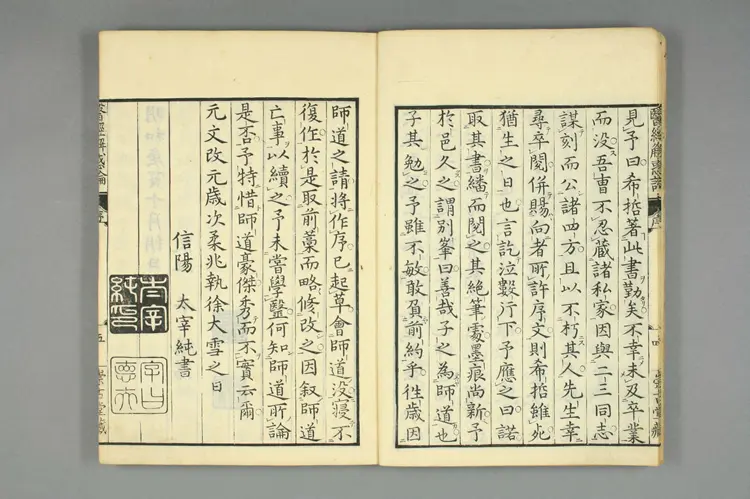 醫經解惑論
序
四
崇古堂藏
見予曰希哲著此書勤矣不幸未及卒業
而没吾曹不忍藏諸私家因與二三同志
謀刻而公諸四方且以不朽其人先生幸
尋卒閱併賜向者所許序文則希哲雖死
猶生之日也言訖泣數行下予應之曰諾
取其書繙而閱之其絶筆處墨痕尚新予
於邑久之謂別峯曰善哉子之為師道也
子其勉之予雖不敏敢負前約乎往歲因
師道之請將作序已起草會師道没寢不
復作於是取前藁而略修改之因叙師道
亡事以續之予未嘗學醫何知師道所論
是否予特惜師道豪傑秀而不實云爾
元文改元歲次柔兆執徐大雪之日
信陽 太宰純書
太宰純印
德夫
醫經解惑論
序
五
崇古堂藏